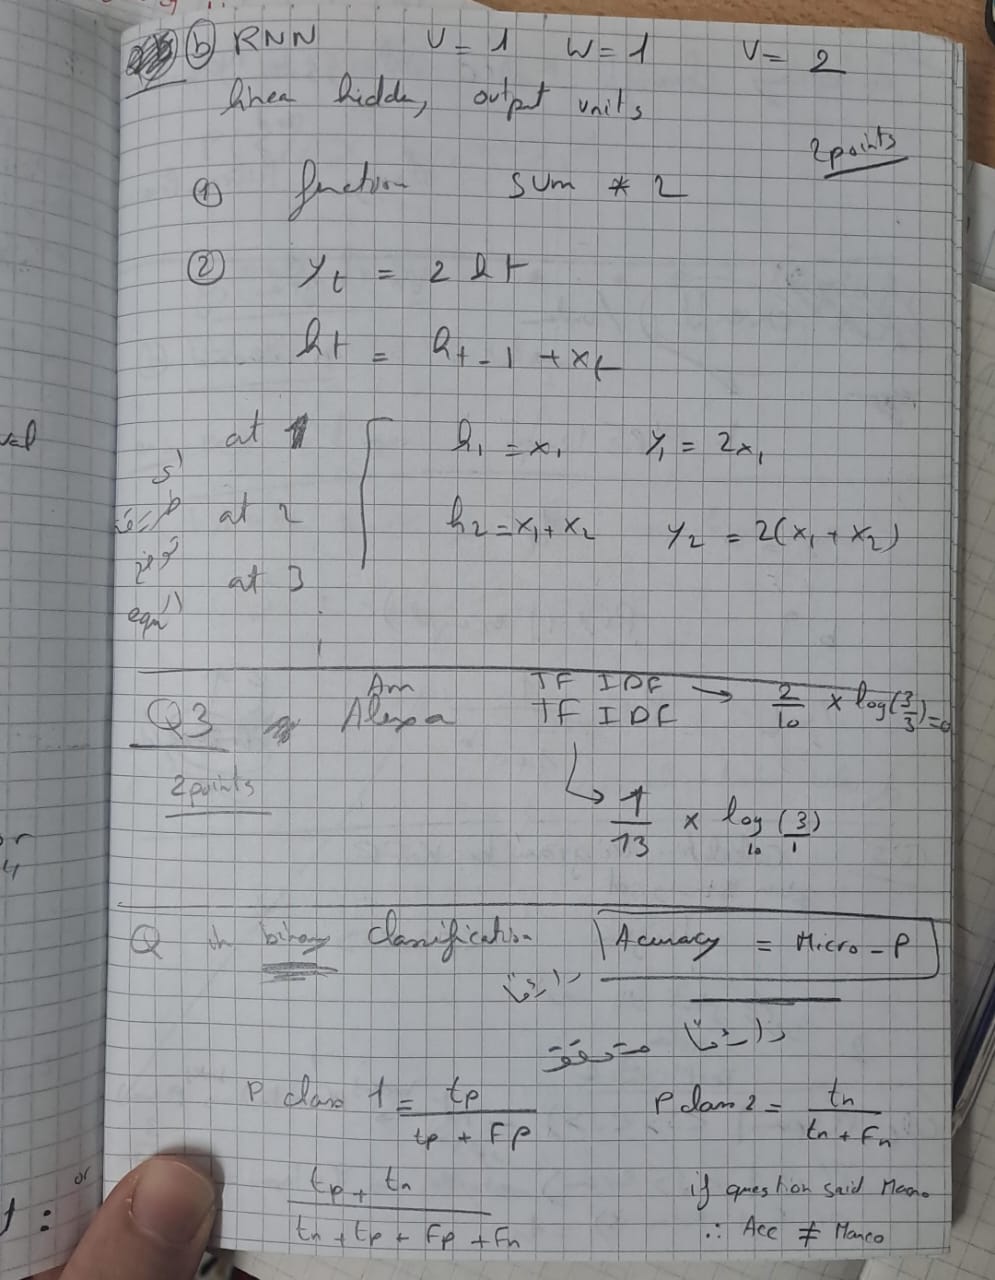 ⓑ RNN U = 1 W = 1 V = 2
linear hidden, output units
2points
① function sum * 2
② yt = 2 ht
ht = ht-1 + xt
at 1 h1 = x1 y1 = 2x1
at 2 h2 = x1 + x2 y2 = 2(x1 + x2)
at 3
Am TF IDF → 2/10 x log(3/3) = 0
Q3 Alexa TF IDF
2points
1/13 x log10 (3/1)
Q In binary classification Accuracy = Micro - P
دايما
دايما متحققة
P class 1 = tp / (tp + Fp) P class 2 = tn / (tn + Fn)
(tp + tn) / (tn + tp + Fp + Fn)
if question said Macro
∴ Acc ≠ Macro